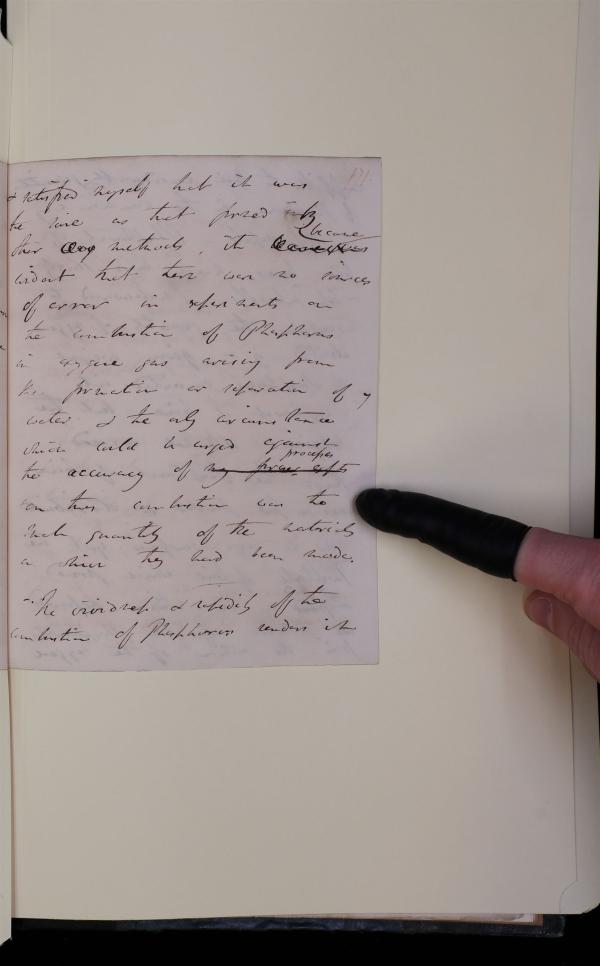 171.
& satisfied myself that it was
the same as that formed in by
other Oxy methods, it became
evident that there were no sources
of error in experiments on
the combustion of Phosphorus
in oxygene gas arising from
the formation or separation of
water & the only circumstance
which could be urged against
processes
the accuracy of my former expts
on this combustion was the
small quantity of the materials
on which they had been made.
- The vividness & rapidity of the
combustion of Phosphorus renders it